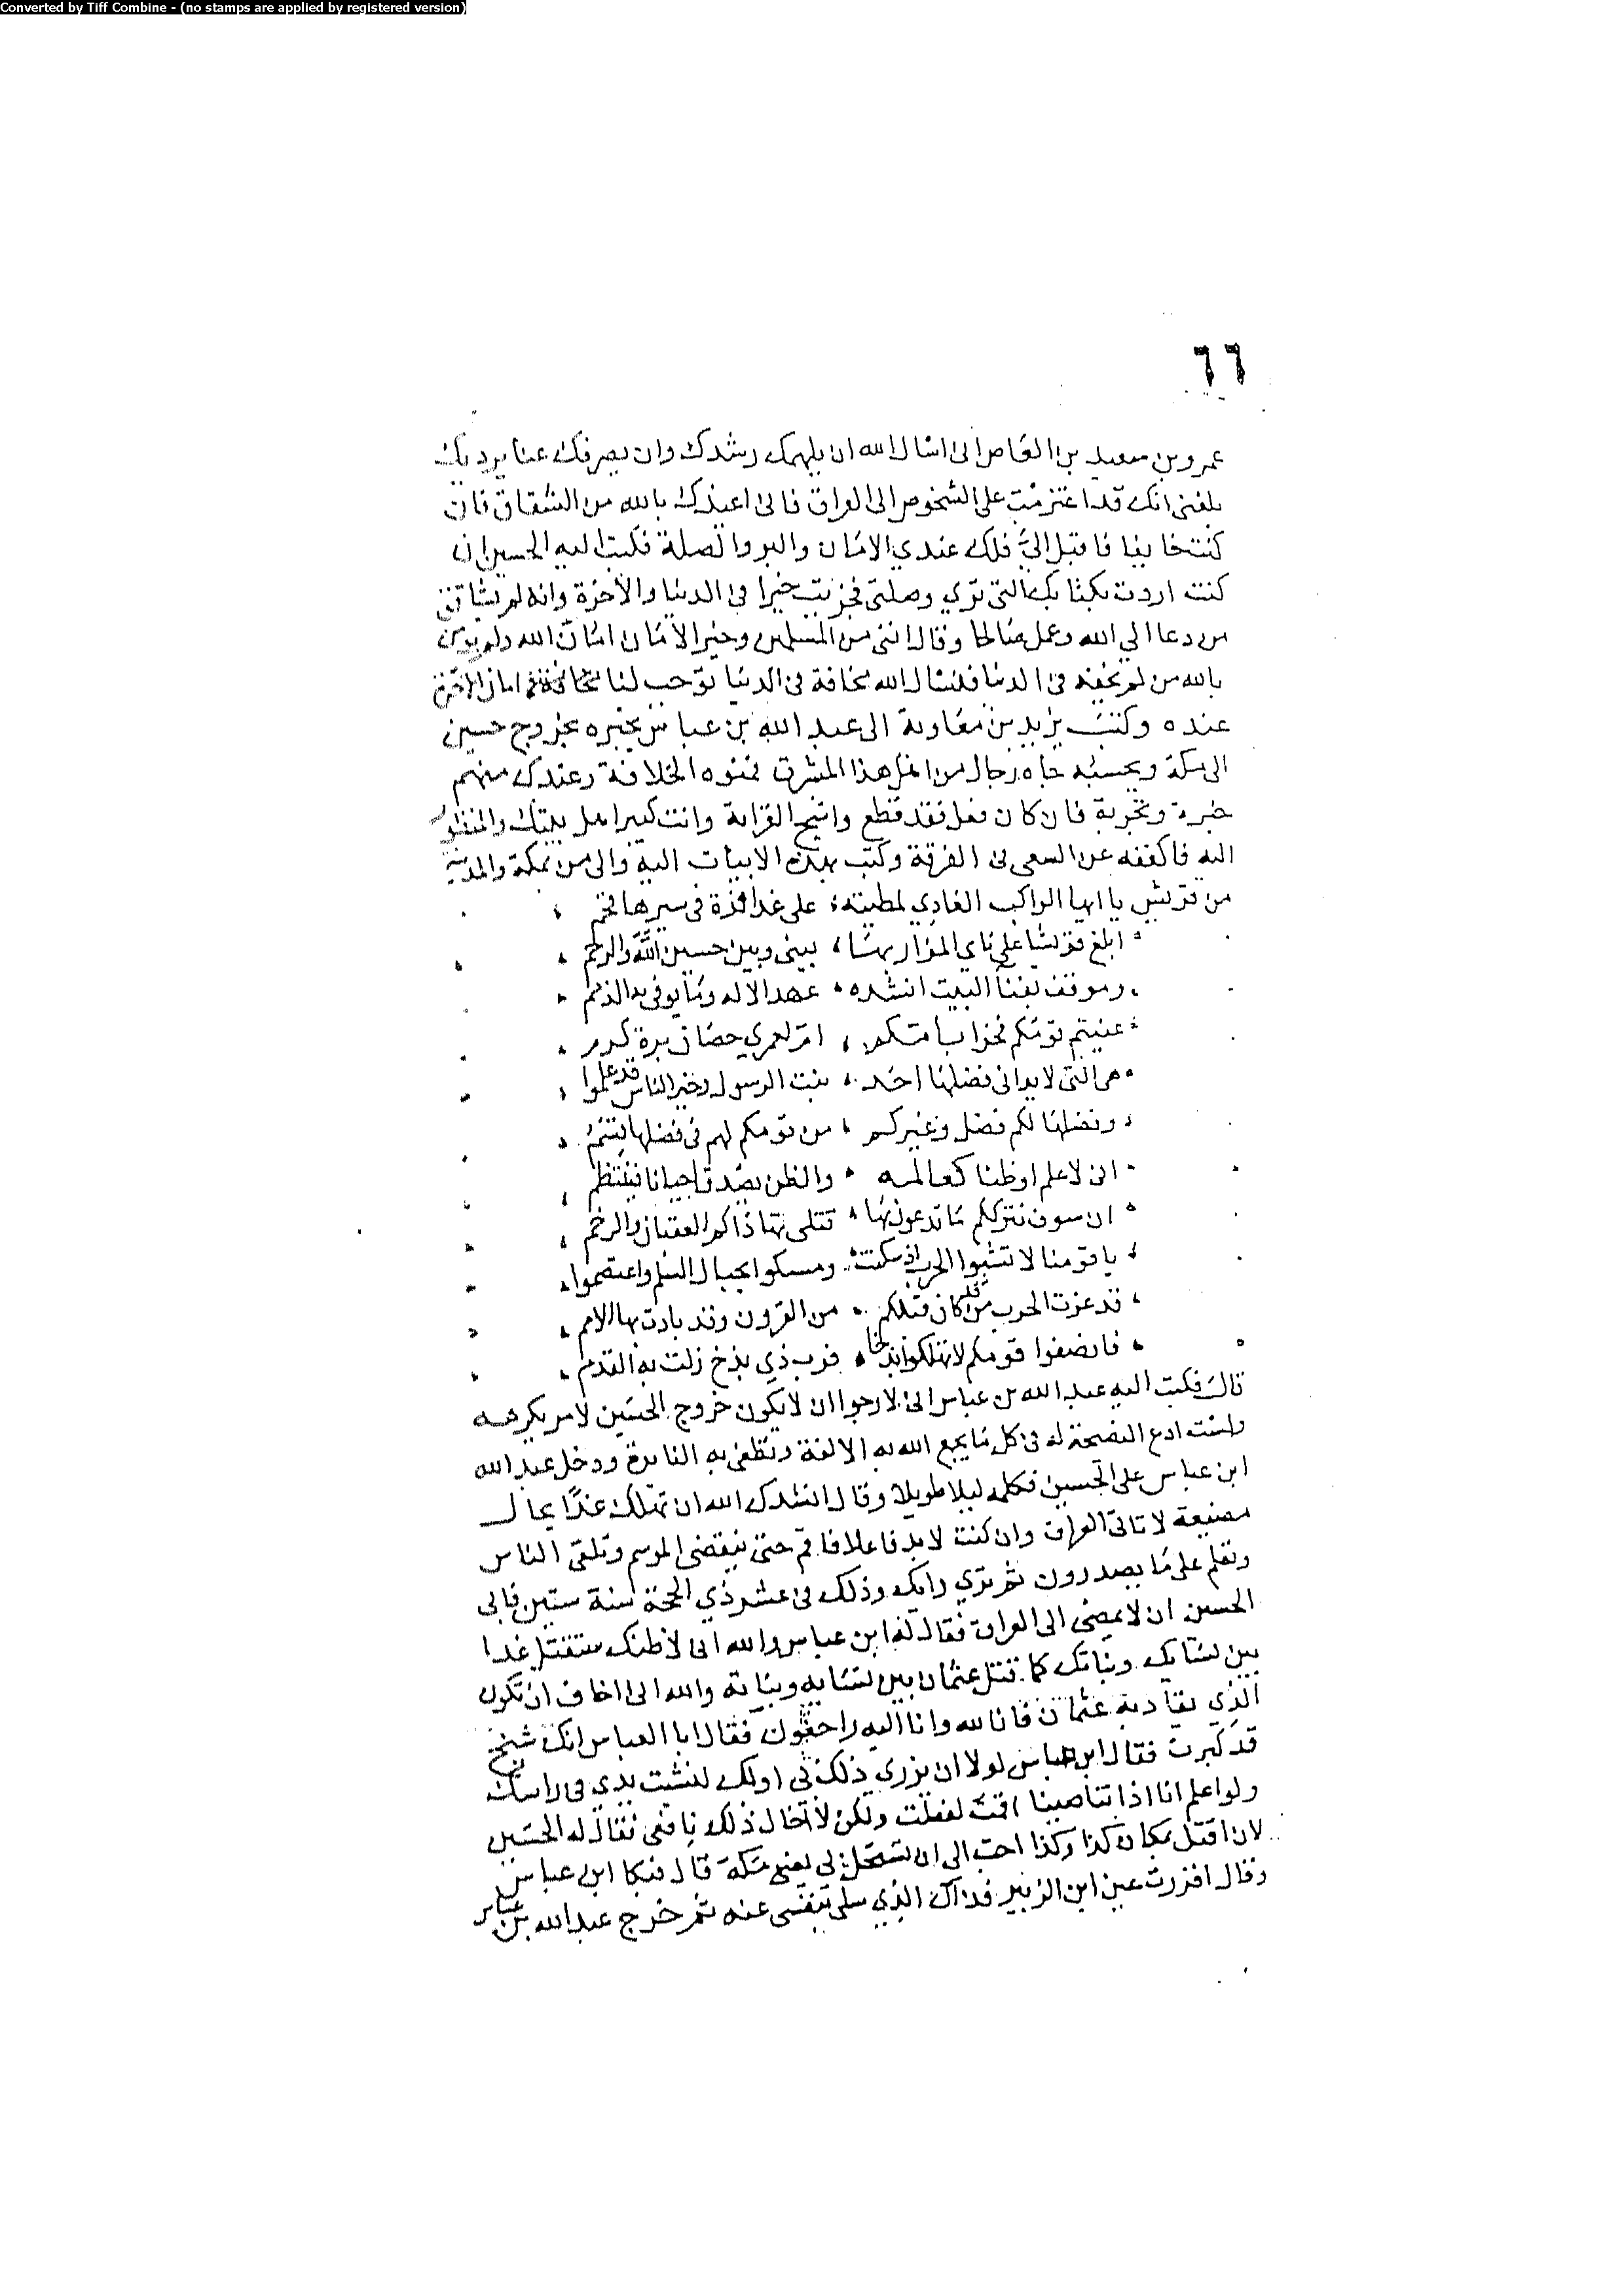 Converted by Tiff Combine - (no stamps are applied by registered version)
٦٦
عمرو بن سعيد بن العاص انى اسال الله ان يلهمك رشدك وان يصرفك عما يرديك
بلغنى انك قد اعتزمت على الشخوص الى العراق فانى اعيذك بالله من الشقاق فان
كنت خايفا فاقبل الىّ فلك عندي الامان والبر والصلة فكتب اليه الحسين ان
كنت اردت بكتابك الى بري وصلتى فجزيت خيرا فى الدنيا والآخرة وانه لم يشاقق
من دعا الي الله وعمل صالحا وقال اننى من المسلمين وخير الامان امان الله ولم يومن
بالله من لم يخفه فى الدنيا فلنسال الله مخافة فى الدنيا توجب لنا امان الآخرة
عنده وكتب يزيد بن معاوية الى عبد الله بن عباس يخبره بخروج حسين
الى مكة ويحسبه جاه رجال من اهل هذا المشرق فمنوه الخلافة وعندك منهم
خبرة وتجربة فان كان فعل فقد قطع واشج القرابة وانت كبير اهل بيتك والمنظور
اليه فاكففه عن السعى فى الفرقة وكتب بهذه الابيات اليه والى من بمكة والمدينة
من قريش يا ايها الراكب الغادي لمطيته على عذافرة فى سيرها قحم
ابلغ قريشا على ناي المزار بها بينى وبين حسين الله والرحم
وموقف بفنا البيت انشده عهد الاله وما يوفى به الذمم
عنيتم قومكم فخرا بامكم ام لعمري حصان برة كرم
هى التى لا يدانى فضلها احد بنت الرسول وخير الناس قد علموا
وفضلها لكم فضل وغيركم من قومكم لهم فى فضلها
انى لاعلم او ظنا كعالمه والظن يصدق احيانا فينتظم
ان سوف نترككم ما تدعون بها قتلى تهاذاكم العقبان والرخم
يا قومنا لا تشبوا الحرب اذ سكنت ومسكوا بحبال السلم واعتصموا
قد عزت الحرب من قد كان قبلكم من القرون وقد بادت بها الامم
فانصفوا قومكم لا تهلكوا بذخا فرب ذي بذخ زلت به القدم
قال فكتب اليه عبد الله بن عباس انى لارجوا ان لا يكون خروج الحسين لامر يكرهه
ولست ادع النصيحة له فى كل ما يجمع الله به الالفة وتطفى به النايرة ودخل عبد الله
ابن عباس على الحسين فكلمه ليلا طويلا وقال انشدك الله ان تهلك غدًا بحال
مضيعة لا تاتى العراق وان كنت لا بد فاعلا فاقم حتى ينقضى الموسم وتلقى الناس
وتعلم على ما يصدرون ثم تري رايك وذلك فى عشر ذي الحجة سنة ستين فابى
الحسين ان لا يمضى الى العراق فقال له ابن عباس والله انى لاظنك ستقتل غدا
بين نسايك وبناتك كما قتل عثمان بين نسايه وبناته والله انى اخاف ان تكون
الذي يقاد به عثمان فانا لله وانا اليه راجعون فقال ابا العباس انك شيخ
قد كبرت فقال ابن عباس لولا ان يزري ذلك بى او بك لنشبت يدي فى راسك
ولو اعلم انا اذا تناصينا اقمت لفعلت ولكن لا اخال ذلك نافعى فقال له الحسين
لان اقتل بمكان كذا وكذا احب الى ان تستحل بى يعنى مكة قال فبكا ابن عباس
وقال اقررت عين ابن الزبير فذاك الذي سلى بنفسى عنه ثم خرج عبد الله بن عباس